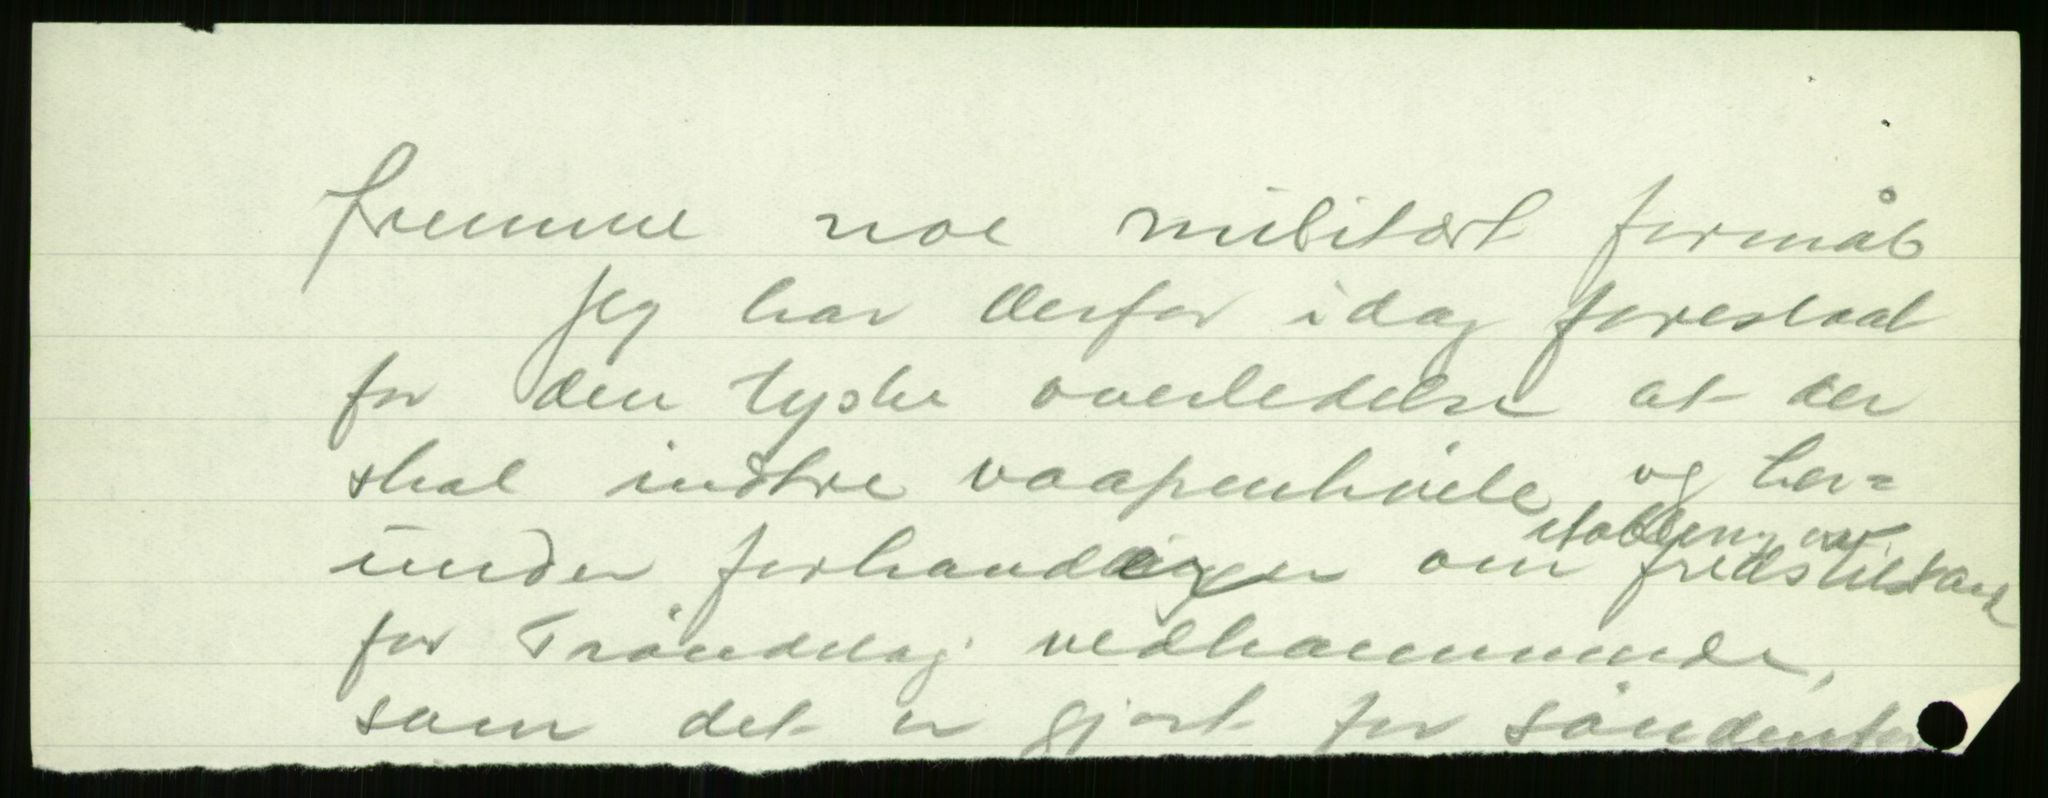 fremme noe militært formål
Jeg har derfor idag foreslaat
for den tyske overledelse at der
skal indtre vaapenhvile og her=
under forhandlinger om fredstilstand
etablering av
for Trøndelag vedkommende,
som det er gjort for søndenfor